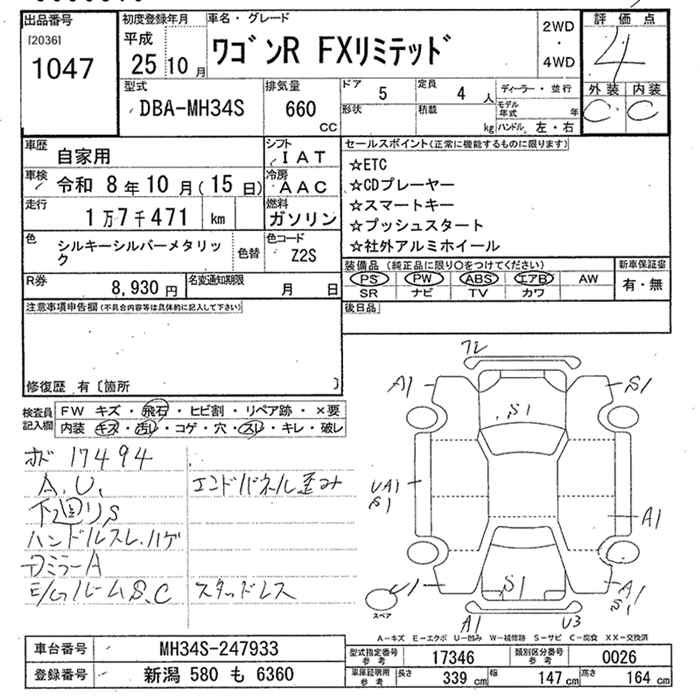 出品番号
[2036]
1047
初度登録年月
平成
25 10 月
車名・グレード
ワゴンR FXリミテッド
2WD
・
4WD
評価点
4
外装 内装
C C
型式
DBA-MH34S
排気量
660
CC
ドア
5
定員
4 人
形状
積載
kg
ディーラー・並行
モデル年式 年
ハンドル 左・右
車歴
自家用
シフト
IAT
車検 令和 8 年 10 月(15 日)
冷房
AAC
走行
1 万 7 千 471 km
燃料
ガソリン
色
シルキーシルバーメタリック
色替
色コード
Z2S
R券
8,930 円
名変通知期限
月 日
セールスポイント(正常に機能するものに限ります)
☆ETC
☆CDプレーヤー
☆スマートキー
☆プッシュスタート
☆社外アルミホイール
装備品(純正品に限り〇をつけてください)
PS PW ABS エアB AW
SR ナビ TV カワ
新車保証書
有・無
後日品
注意事項申告欄(不具合内容等は具体的に記入して下さい)
修復歴 有〔箇所 〕
検査員記入欄
FW キズ・飛石・ヒビ割・リペア跡・×要
内装 キズ・汚レ・コゲ・穴・スレ・キレ・破レ
ホド 17494
A.U.
下廻りS
ハンドルスレ.ハゲ
ミラーA
E/Gルーム S.C
エンドパネル歪み
スタッドレス
フレ
A1
S1
S1
UA1
S1
A1
U1
S1
A1
S1
A1
U3
スペア
A-キズ E-エクボ U-凹み W-補修跡 S-サビ C-腐食 XX-交換済
車台番号
MH34S-247933
登録番号
新潟 580 も 6360
型式指定番号参考
17346
類別区分番号参考
0026
車庫証明用参考
長さ 339 cm
幅 147 cm
高さ 164 cm